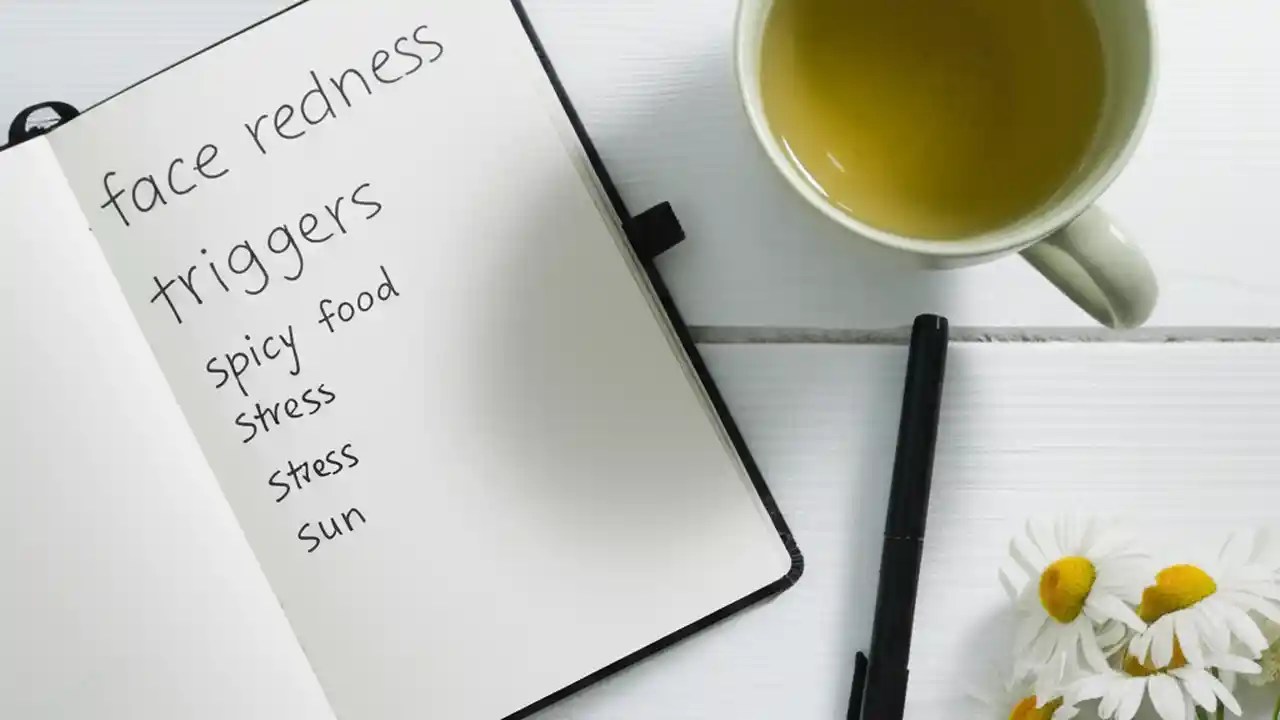 face redness
triggers
spicy food
stress
stress
sun